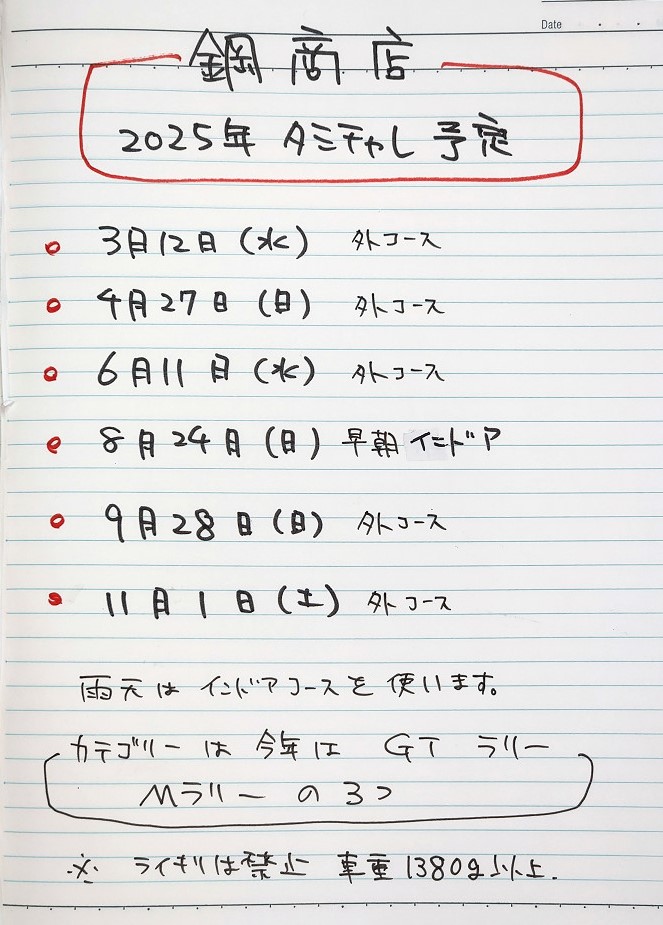 Date ・ ・
鋼商店
2025年 タミチャレ 予定
3月12日(水) 外コース
4月27日(日) 外コース
6月11日(水) 外コース
8月24日(日) 早朝インドア
9月28日(日) 外コース
11月1日(土) 外コース
雨天は インドアコースを 使います。
カテゴリーは 今年は GT ラリー
Mラリー の 3つ
※ ライキリは禁止 車重1380g以上.